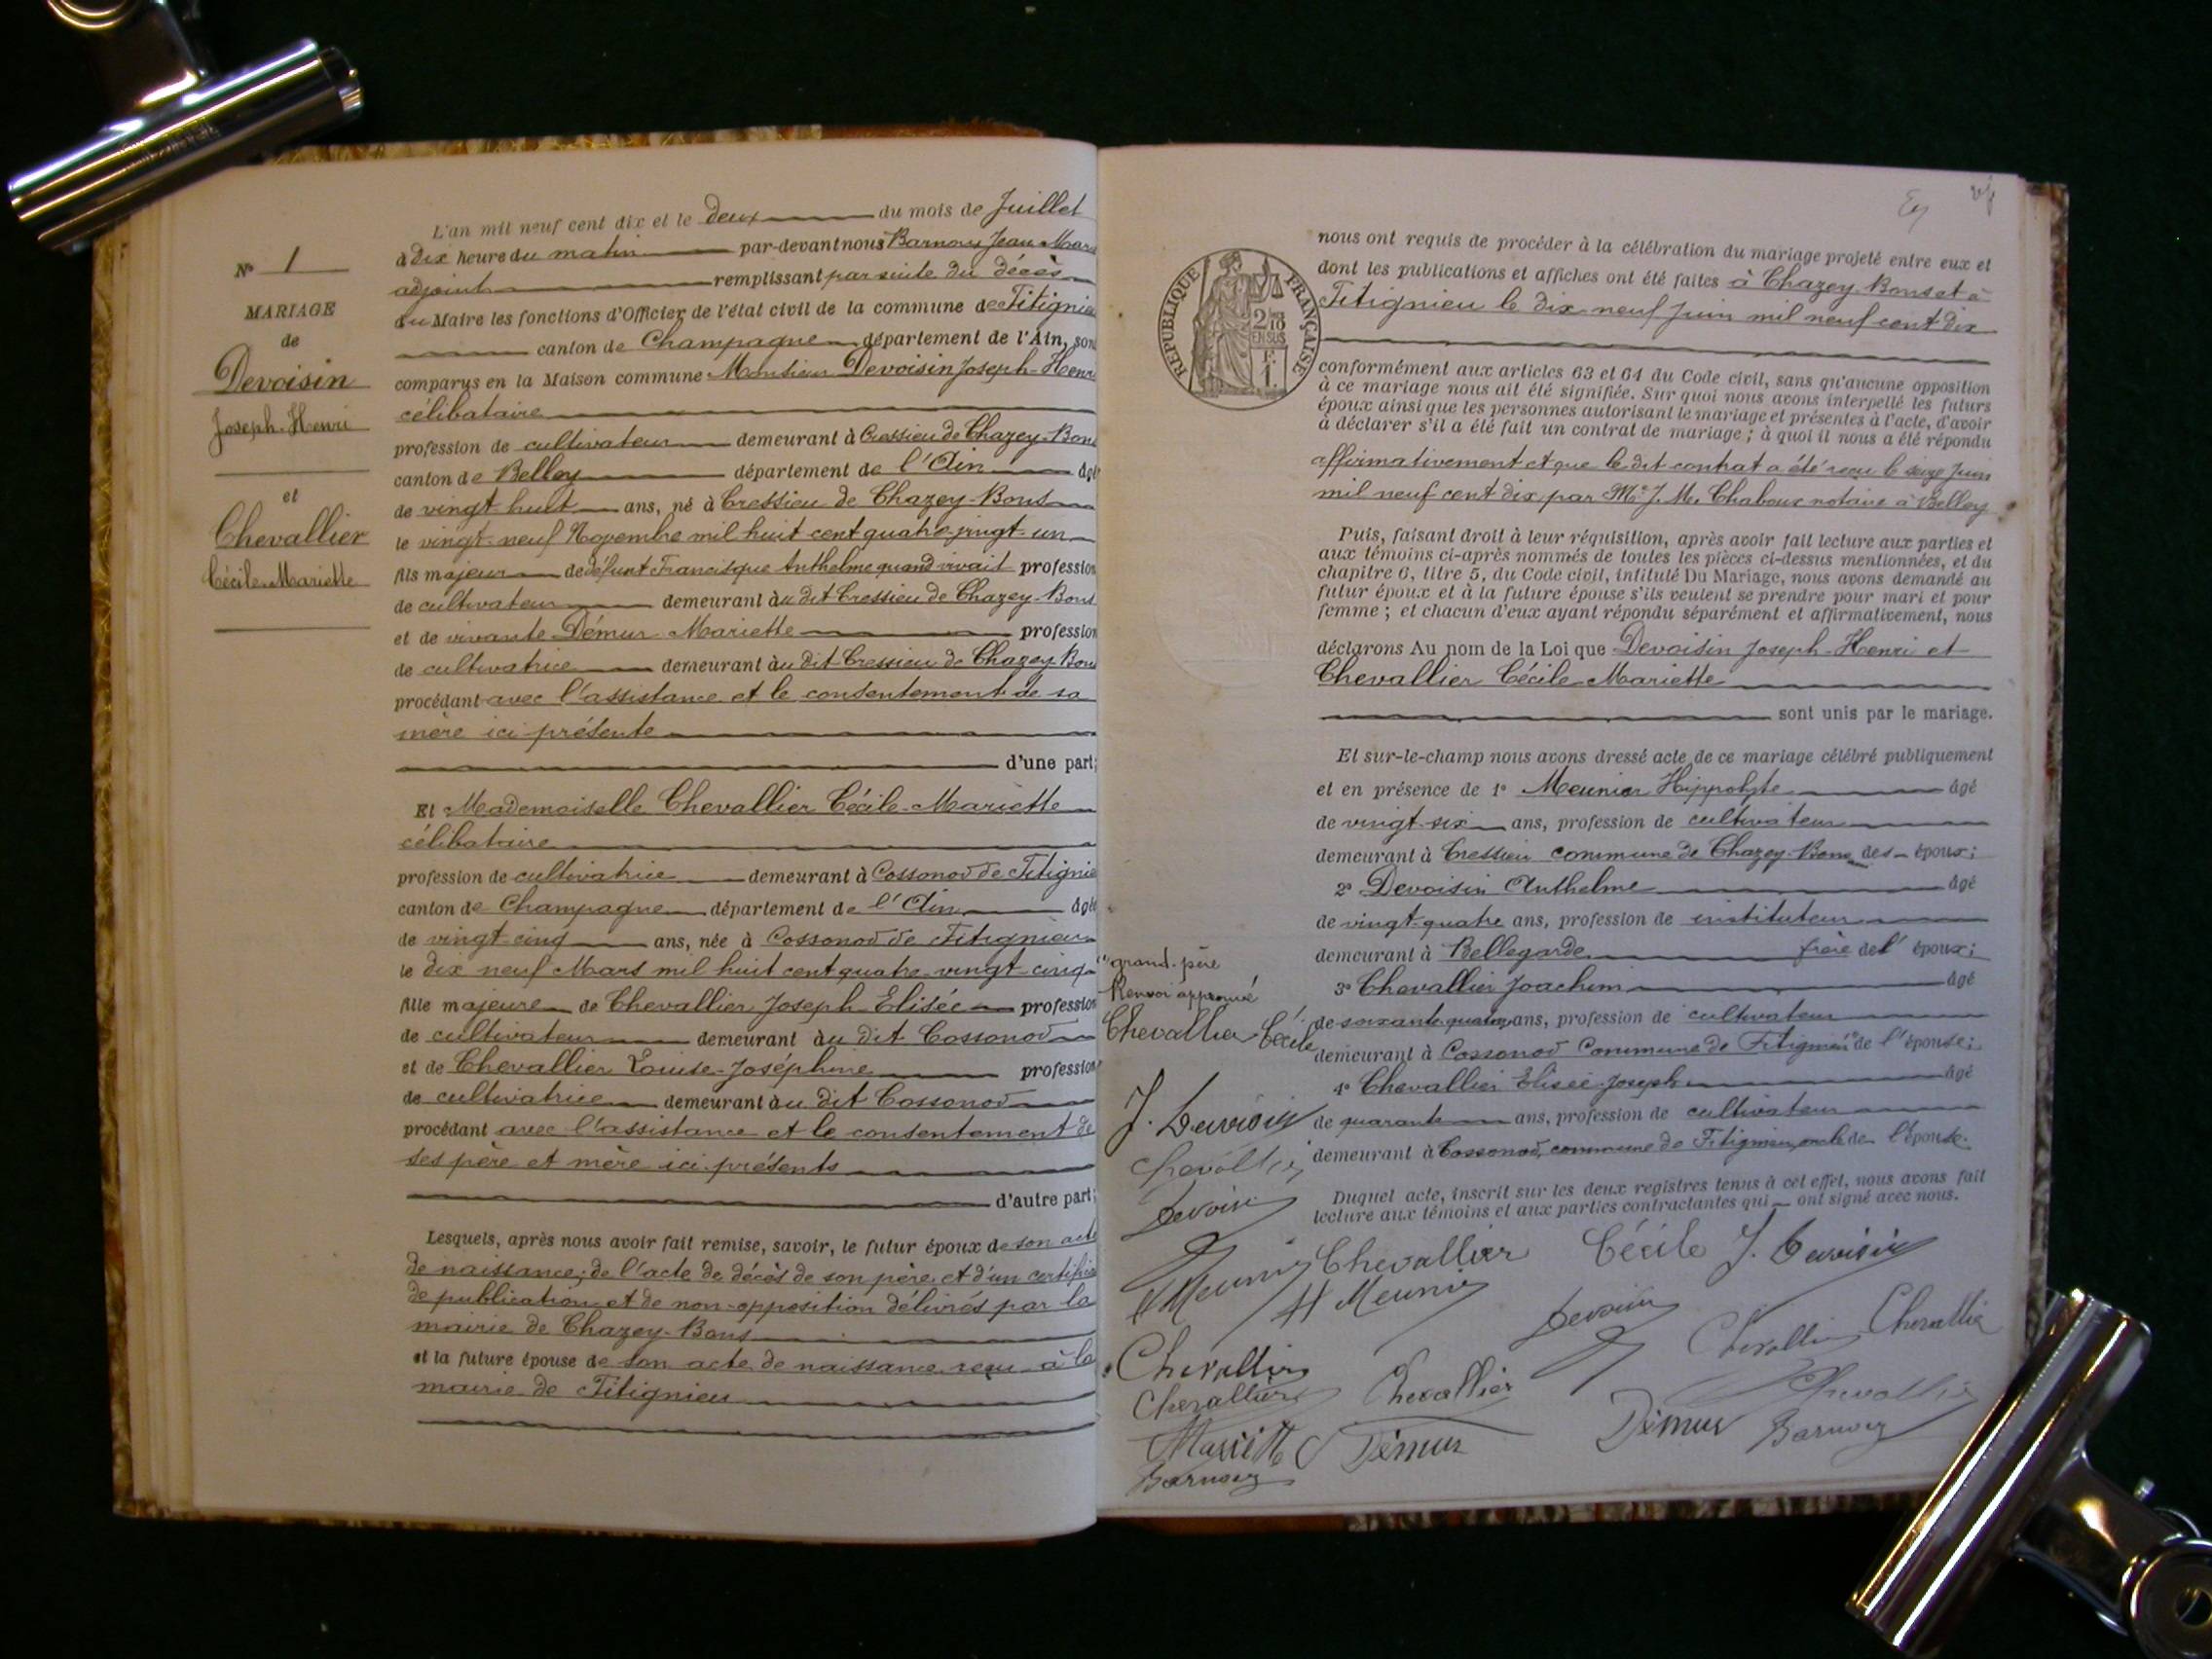 N° 1
MARIAGE
de
Devoisin
Joseph-Henri
et
Chevallier
Cécile-Mariette
L'an mil neuf cent dix et le deux du mois de Juillet
à dix heure du matin par-devant nous Jean Marie
adjoint remplissant par suite du décès
du Maire les fonctions d'Officier de l'état civil de la commune de Fitignieu
canton de Champagne département de l'Ain, sont
comparus en la Maison commune Monsieur Devoisin Joseph-Henri
célibataire
profession de cultivateur demeurant à Cressieu de Chazey-Bons
canton de Belley département de l'Ain âgé
de vingt huit ans, né à Cressieu de Chazey-Bons
le vingt-neuf Novembre mil huit cent quatre-vingt-un
fils majeur de défunt Francisque Anthelme quand vivait profession
de cultivateur demeurant au dit Cressieu de Chazey-Bons
et de vivante Démur Mariette profession
de cultivatrice demeurant au dit Cressieu de Chazey-Bons
procédant avec l'assistance et le consentement de sa
mère ici présente
d'une part;
Et Mademoiselle Chevallier Cécile-Mariette
célibataire
profession de cultivatrice demeurant à Cossonod de Fitignieu
canton de Champagne département de l'Ain âgée
de vingt-cinq ans, née à Cossonod de Fitignieu
le dix neuf Mars mil huit cent quatre-vingt-cinq
fille majeure de Chevallier Joseph-Elisée profession
de cultivateur demeurant au dit Cossonod
et de Chevallier Louise-Joséphine profession
de cultivatrice demeurant au dit Cossonod
procédant avec l'assistance et le consentement de
ses père et mère ici présents
d'autre part;
Lesquels, après nous avoir fait remise, savoir, le futur époux de son acte
de naissance; de l'acte de décès de son père et d'un certificat
de publication et de non-opposition délivrés par la
mairie de Chazey-Bons
et la future épouse de son acte de naissance reçu à la
mairie de Fitignieu
REPUBLIQUE FRANÇAISE
2/10 EN SUS
1 F.
nous ont requis de procéder à la célébration du mariage projeté entre eux et
dont les publications et affiches ont été faites à Chazey-Bons et à
Fitignieu le dix-neuf Juin mil neuf cent dix
conformément aux articles 63 et 64 du Code civil, sans qu'aucune opposition
à ce mariage nous ait été signifiée. Sur quoi nous avons interpellé les futurs
époux ainsi que les personnes autorisant le mariage et présentes à l'acte, d'avoir
à déclarer s'il a été fait un contrat de mariage; à quoi il nous a été répondu
affirmativement et que le dit contrat a été reçu le seize Juin
mil neuf cent dix par Me J. M. Chaboux notaire à Belley
Puis, faisant droit à leur réquisition, après avoir fait lecture aux parties et
aux témoins ci-après nommés de toutes les pièces ci-dessus mentionnées, et du
chapitre 6, titre 5, du Code civil, intitulé Du Mariage, nous avons demandé au
futur époux et à la future épouse s'ils veulent se prendre pour mari et pour
femme; et chacun d'eux ayant répondu séparément et affirmativement, nous
déclarons Au nom de la Loi que Devoisin Joseph-Henri et
Chevallier Cécile-Mariette
sont unis par le mariage.
Et sur-le-champ nous avons dressé acte de ce mariage célébré publiquement
et en présence de 1° Meunier Hippolyte âgé
de vingt-six ans, profession de cultivateur
demeurant à Cressieu commune de Chazey-Bons des époux;
2° Devoisin Anthelme âgé
de vingt-quatre ans, profession de instituteur
demeurant à Bellegarde frère de l'époux;
3° Chevallier Joachim âgé
de soixante ans, profession de cultivateur
demeurant à Cossonod Commune de Fitignieu (1) de l'épouse;
4° Chevallier Elisée-Joseph âgé
de quarante ans, profession de cultivateur
demeurant à Cossonod, commune de Fitignieu, oncle de l'épouse.
Duquel acte, inscrit sur les deux registres tenus à cet effet, nous avons fait
lecture aux témoins et aux parties contractantes qui ont signé avec nous.
(1) grand-père
Renvoi approuvé
Chevallier Cécile
J. Devoisin
Chevallier
Devoisin
Meunier
Chevallier
Chevallier
Mariette Démur
Chevallier Cécile J. Devoisin
H Meunier Devoisin
Chevallier Chevallier
Chevallier Chevallier
Démur